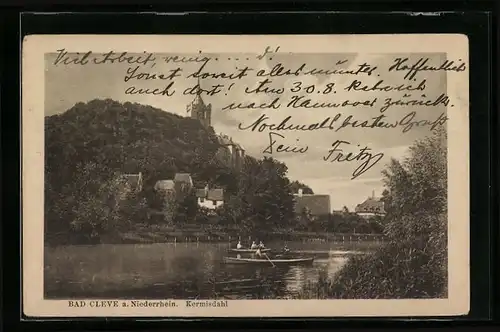 Viel Arbeit, wenig .... o!
Sonst soweit alles munter. Hoffentlich
auch dort! Am 30.8. Rückreise
nach Hannover zurück.
Nochmals besten Gruß
Dein Fritz
BAD CLEVE a. Niederrhein. Kermisdahl